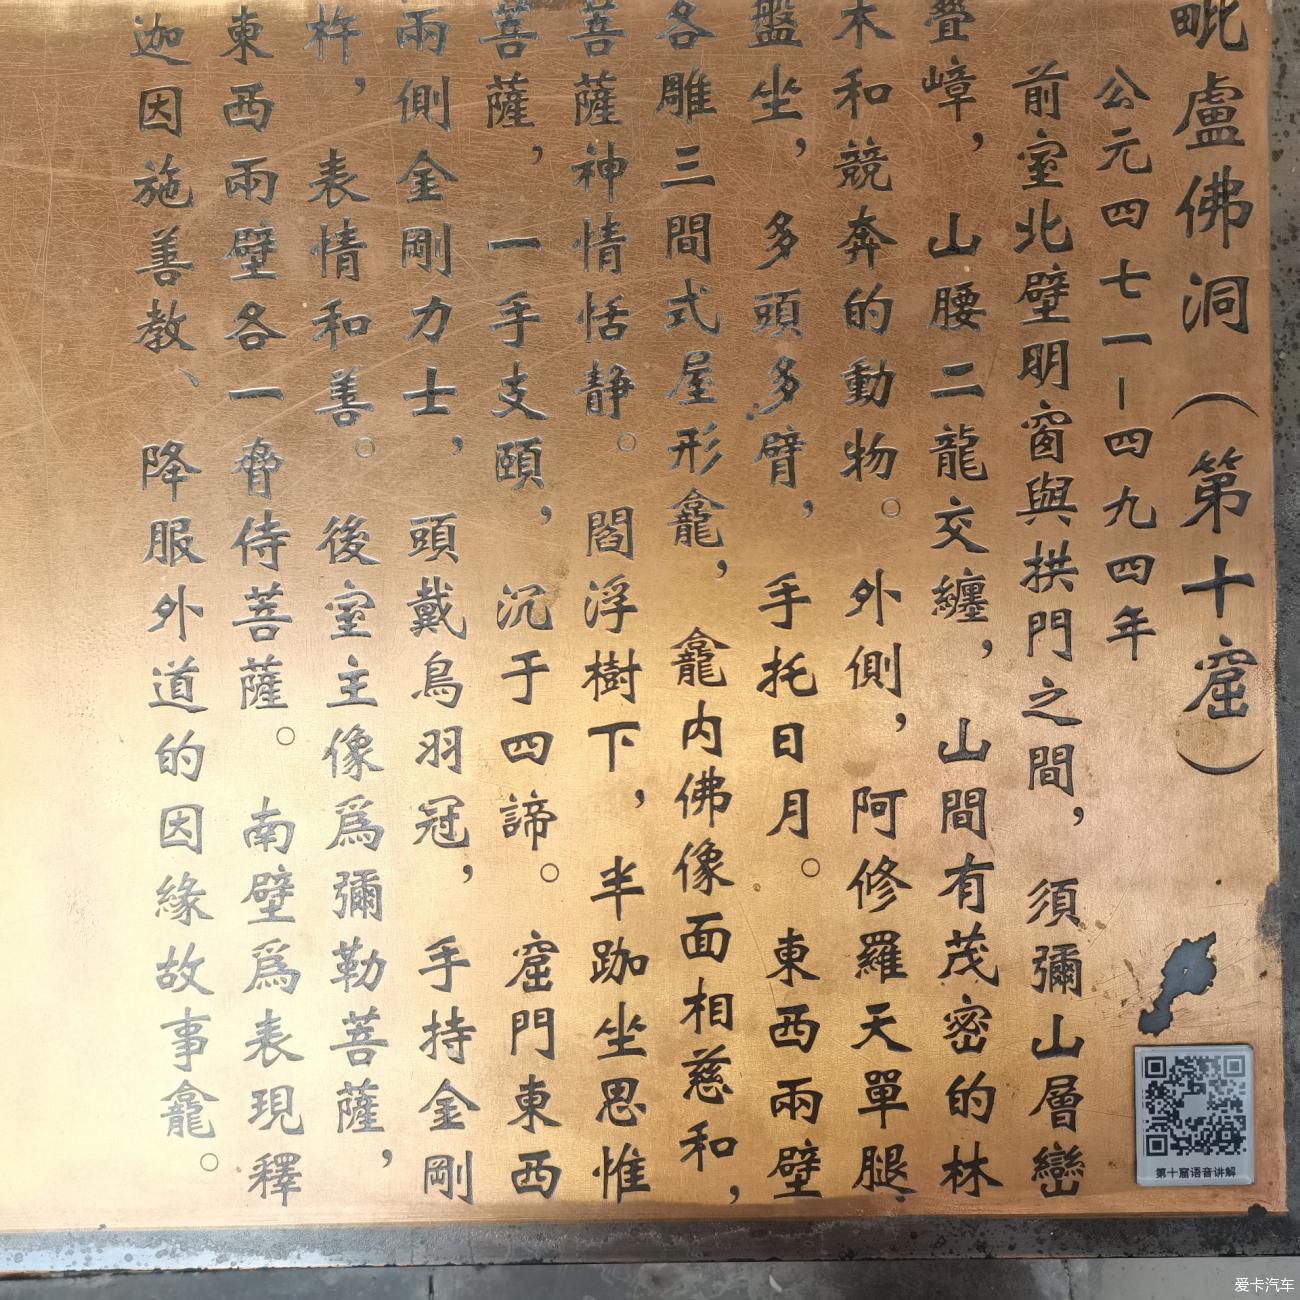 毗盧佛洞（第十窟）
公元四七一—四九四年
前室北壁明窗與拱門之間，須彌山層巒
疊嶂，山腰二龍交纏，山間有茂密的林
木和競奔的動物。外側，阿修羅天單腿
盤坐，多頭多臂，手托日月。東西兩壁
各雕三間式屋形龕，龕内佛像面相慈和，
菩薩神情恬静。閻浮樹下，半跏坐思惟
菩薩，一手支頤，沉于四諦。窟門東西
兩側金剛力士，頭戴鳥羽冠，手持金剛
杵，表情和善。後室主像爲彌勒菩薩，
東西兩壁各一脅侍菩薩。南壁爲表現釋
迦因施善教、降服外道的因緣故事龕。
第十窟语音讲解
爱卡汽车